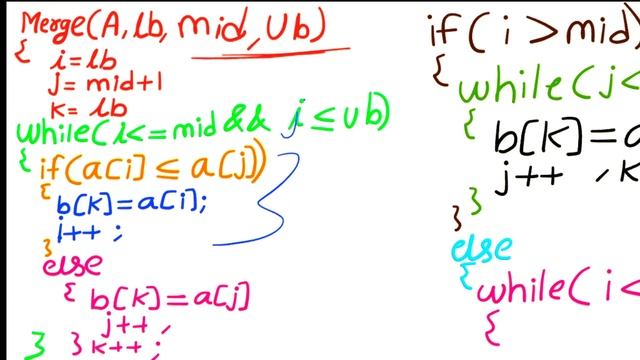 Merge(A, lb, mid, Ub)
{ i=lb
j= mid+1
k= lb
while(i<=mid && j≤Ub)
{ if(a[i] ≤ a[j])
{ b[k]=a[i];
i++ ;
}
else
{ b[k]=a[j]
j++ ;
} } k++ ;
if( i >mid)
{ while(j<
{ b[k]=a
j++ , k
} }
else
{ while( i<
{